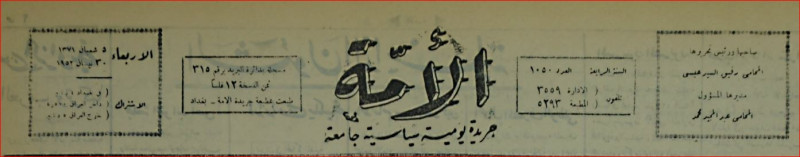 صاحبها ورئيس تحريرها
المحامي رفيق السيد عيسى
مديرها المسؤول
المحامي عبد المجيد محمد
السنة الرابعة العدد ١٠٥٠
تلفون
الادارة ٣٥٥٩
المطبعة ٥٢٩٣
الأمّة
جريدة يومية سياسية جامعة
مسجلة بدائرة البريد برقم ٣١٥
ثمن النسخة ١٢ فلساً
طبعت بمطبعة جريدة الامة - بغداد
الاربعاء
٥ شعبان ١٣٧١
٣٠ نيسان ١٩٥٢
الاشتراك
في بغداد
داخل العراق
خارج العراق